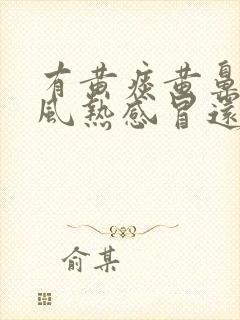 有黄痰黄鼻
风热感冒还
俞某